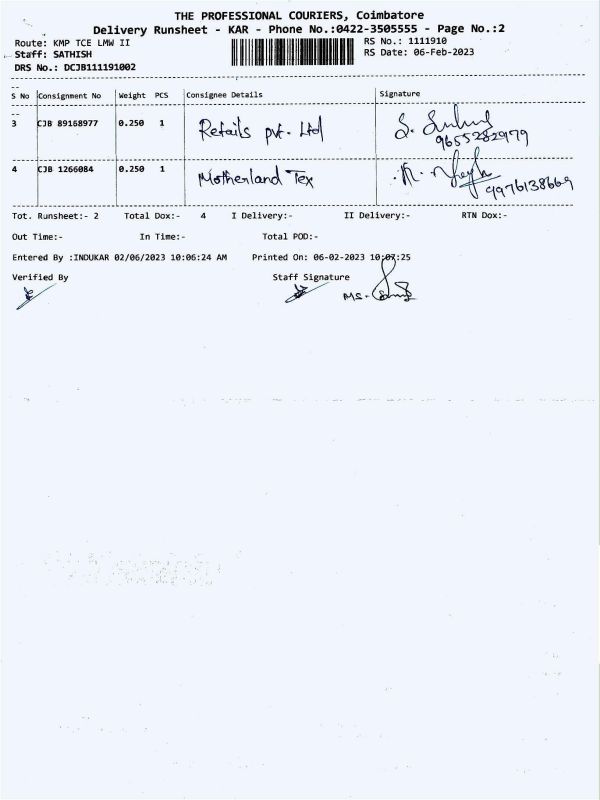 THE PROFESSIONAL COURIERS, Coimbatore
Delivery Runsheet - KAR - Phone No.:0422-3505555 - Page No.:2
Route: KMP TCE LMW II
RS No.: 1111910
Staff: SATHISH
RS Date: 06-Feb-2023
DRS No.: DCJB111191002
S No Consignment No Weight PCS Consignee Details Signature
3 CJB 89168977 0.250 1 Retails pvt. Ltd
9655282979
4 CJB 1266084 0.250 1 Motherland Tex
9976138669
Tot. Runsheet:- 2 Total Dox:- 4 I Delivery:- II Delivery:- RTN Dox:-
Out Time:- In Time:- Total POD:-
Entered By :INDUKAR 02/06/2023 10:06:24 AM Printed On: 06-02-2023 10:07:25
Verified By Staff Signature